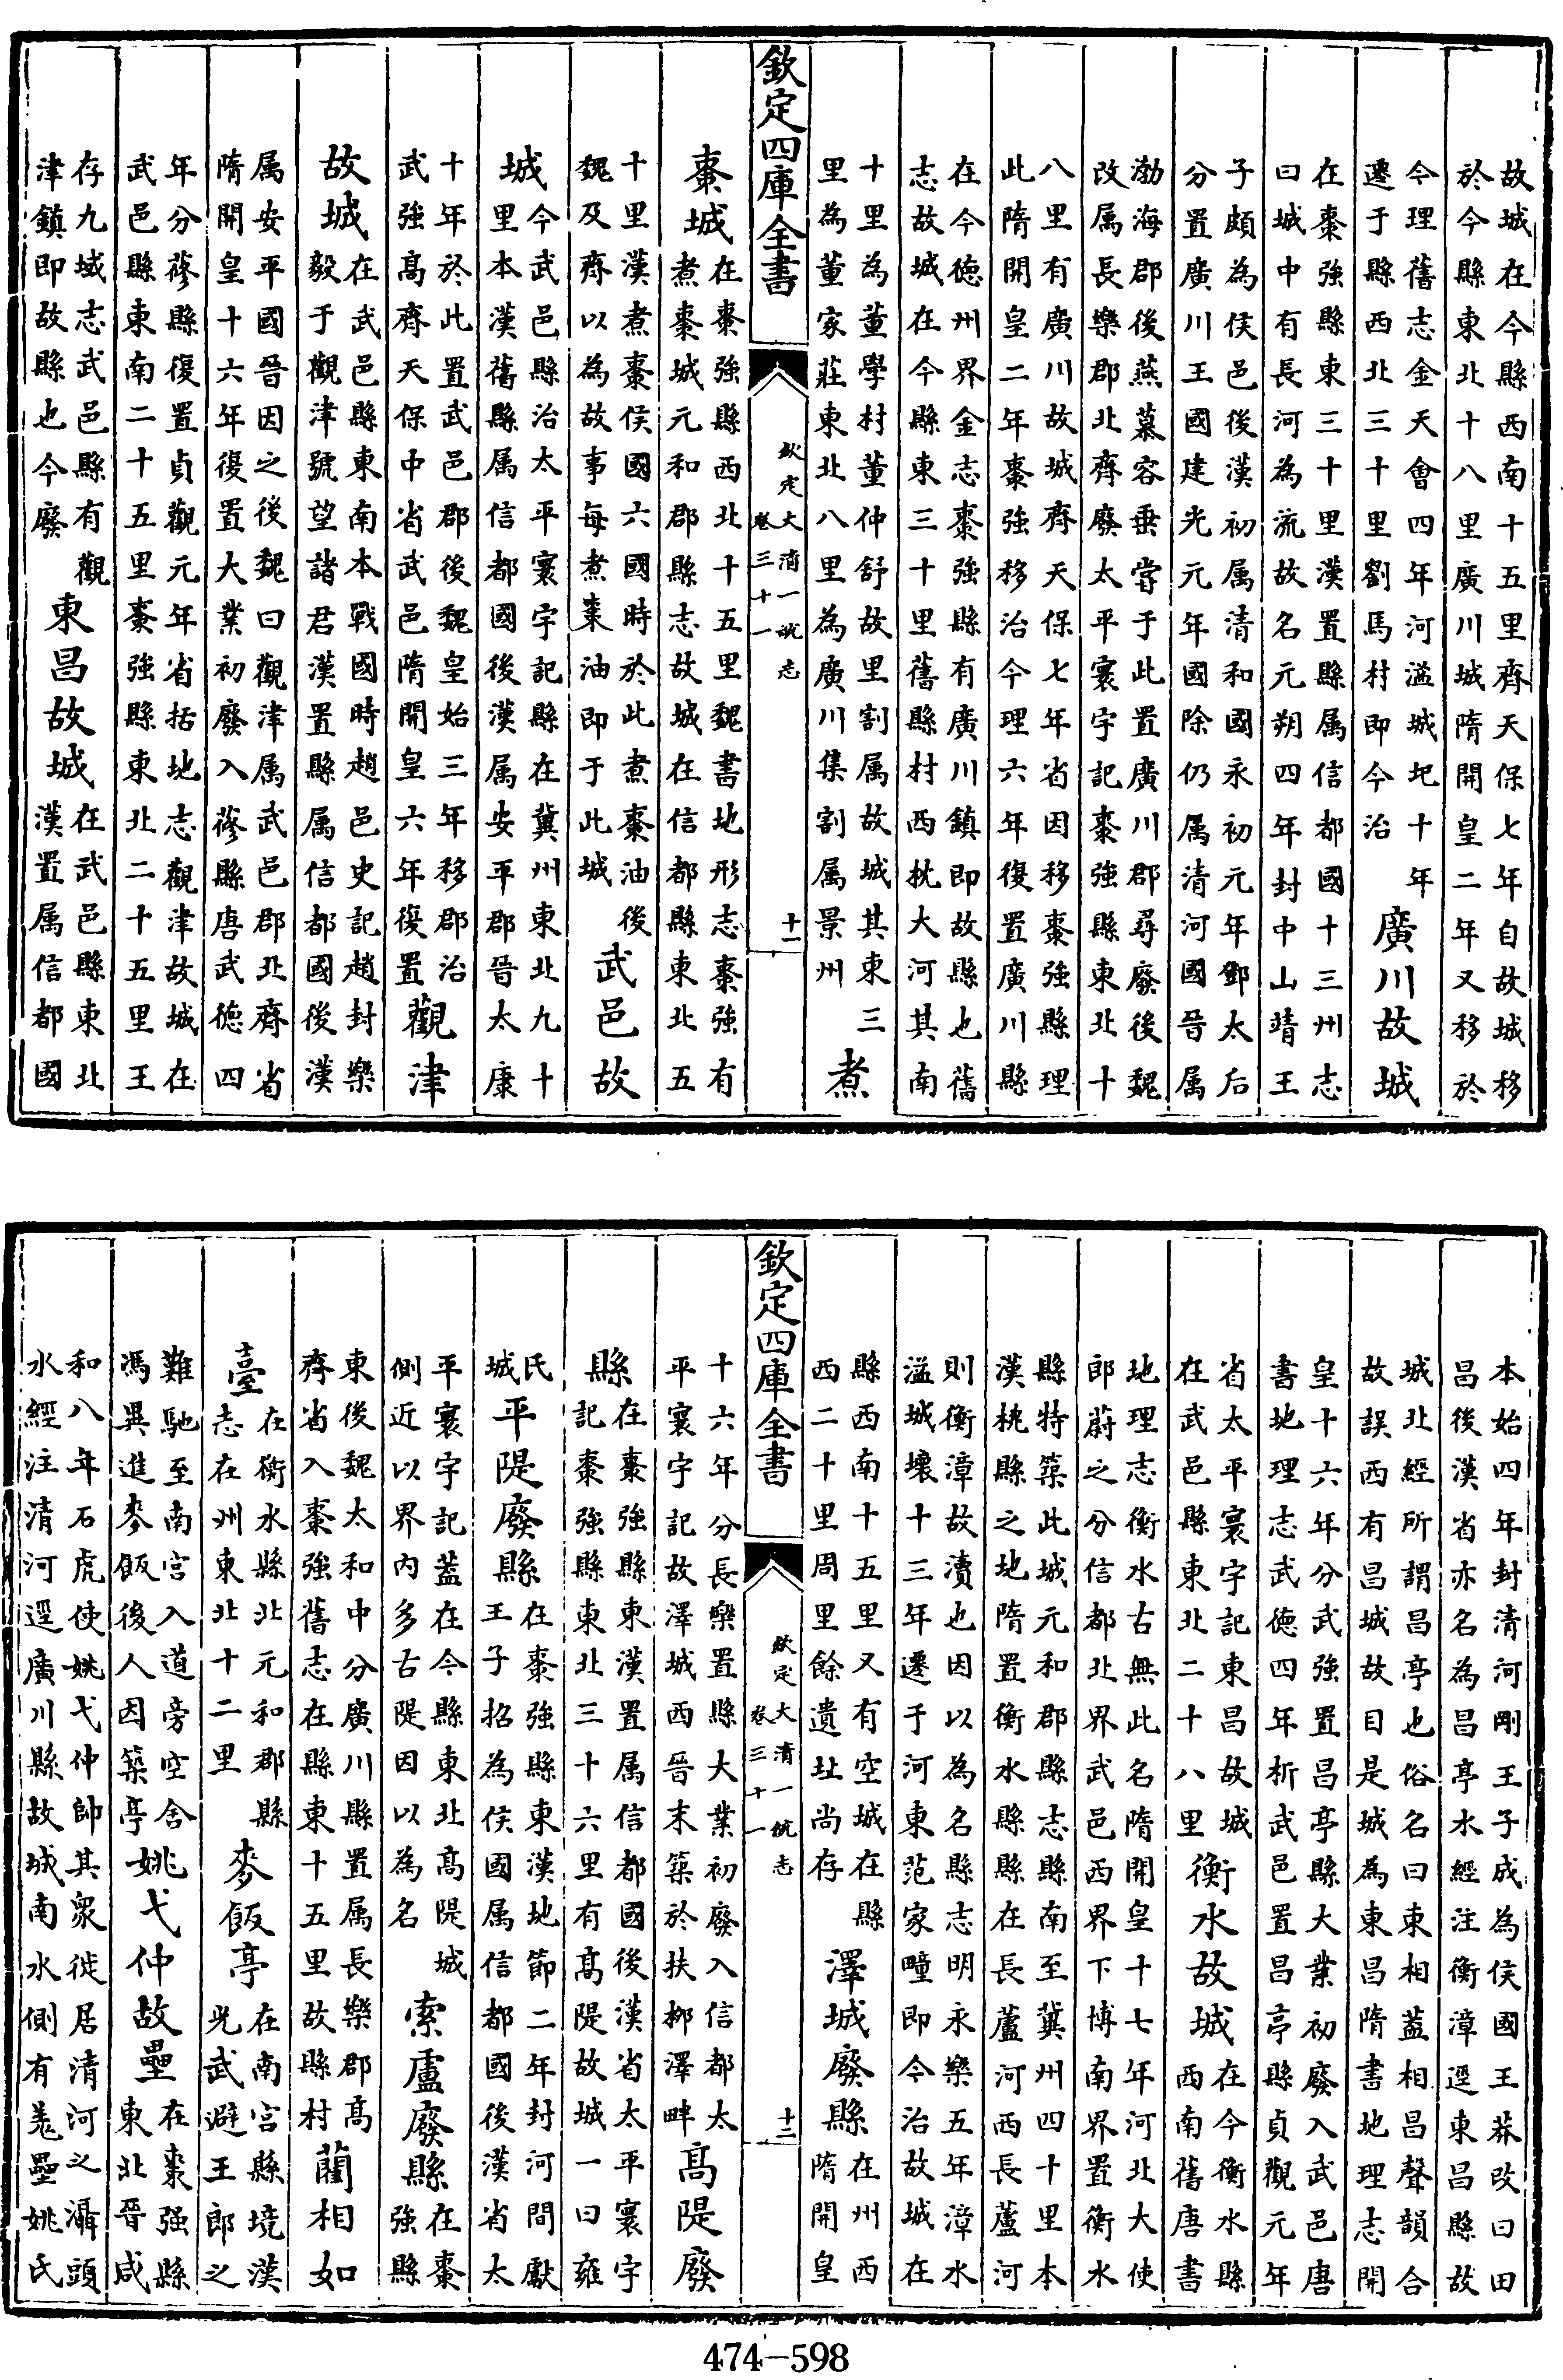 故城在今縣西南十五里齊天保七年自故城移
於今縣東北十八里廣川城隋開皇二年又移於
今理舊志金天會四年河溢城圮十年
遷于縣西北三十里劉馬村即今治
廣川故城
在棗強縣東三十里漢置縣属信都國十三州志
曰城中有長河為流故名元朔四年封中山靖王
子頗為侯邑後漢初属清和國永初元年鄧太后
分置廣川王國建光元年國除仍属清河國晉属
渤海郡後燕慕容垂嘗于此置廣川郡尋廢後魏
改属長樂郡北齊廢太平寰宇記棗強縣東北十
八里有廣川故城齊天保七年省因移棗強縣理
此隋開皇二年棗強移治今理六年復置廣川縣
在今德州界金志棗強縣有廣川鎮即故縣也舊
志故城在今縣東三十里舊縣村西枕大河其南
十里為董學村董仲舒故里割属故城其東三
里為董家莊東北八里為廣川集割属景州
煮
欽定四庫全書
欽定大清一統志
卷三十一
十一
棗城
在棗強縣西北十五里魏書地形志棗強有
煮棗城元和郡縣志故城在信都縣東北五
十里漢煮棗侯國六國時於此煮棗油後
魏及齊以為故事每煮棗油即于此城
武邑故
城
今武邑縣治太平寰宇記縣在冀州東北九十
里本漢舊縣属信都國後漢属安平郡晉太康
十年於此置武邑郡後魏皇始三年移郡治
武強高齊天保中省武邑隋開皇六年復置
觀津
故城
在武邑縣東南本戰國時趙邑史記趙封樂
毅于觀津號望諸君漢置縣属信都國後漢
属安平國晉因之後魏曰觀津属武邑郡北齊省
隋開皇十六年復置大業初廢入蓨縣唐武德四
年分蓨縣復置貞觀元年省括地志觀津故城在
武邑縣東南二十五里棗強縣東北二十五里王
存九域志武邑縣有觀
津鎮即故縣也今廢
東昌故城
在武邑縣東北
漢置属信都國
本始四年封清河剛王子成為侯國王莽改曰田
昌後漢省亦名為昌亭水經注衡漳逕東昌縣故
城北經所謂昌亭也俗名曰東相蓋相昌聲韻合
故誤西有昌城故目是城為東昌隋書地理志開
皇十六年分武強置昌亭縣大業初廢入武邑唐
書地理志武德四年析武邑置昌亭縣貞觀元年
省太平寰宇記東昌故城
在武邑縣東北二十八里
衡水故城
在今衡水縣
西南舊唐書
地理志衡水古無此名隋開皇十七年河北大使
郎蔚之分信都北界武邑西界下博南界置衡水
縣特築此城元和郡縣志縣南至冀州四十里本
漢桃縣之地隋置衡水縣縣在長蘆河西長蘆河
則衡漳故瀆也因以為名縣志明永樂五年漳水
溢城壞十三年遷于河東范家疃即今治故城在
縣西南十五里又有空城在縣
西二十里周里餘遺址尚存
澤城廢縣
在州西
隋開皇
欽定四庫全書
欽定大清一統志
卷三十一
十二
十六年分長樂置縣大業初廢入信都太
平寰宇記故澤城西晉末築於扶柳澤畔
高隄廢
縣
在棗強縣東漢置属信都國後漢省太平寰宇
記棗強縣東北三十六里有高隄故城一曰雍
氏
城
平隄廢縣
在棗強縣東漢地節二年封河間獻
王子招為侯國属信都國後漢省太
平寰宇記蓋在今縣東北高隄城
側近以界內多古隄因以為名
索盧廢縣
在棗
強縣
東後魏太和中分廣川縣置属長樂郡高
齊省入棗強舊志在縣東十五里故縣村
藺相如
臺
在衡水縣北元和郡縣
志在州東北十二里
麥飯亭
在南宮縣境漢
光武避王郎之
難馳至南宮入道旁空舍
馮異進麥飯後人因築亭
姚弋仲故壘
在棗强縣
東北晉咸
和八年石虎使姚弋仲帥其衆徙居清河之灄頭
水經注清河逕廣川縣故城南水側有羌壘姚氏
474-598